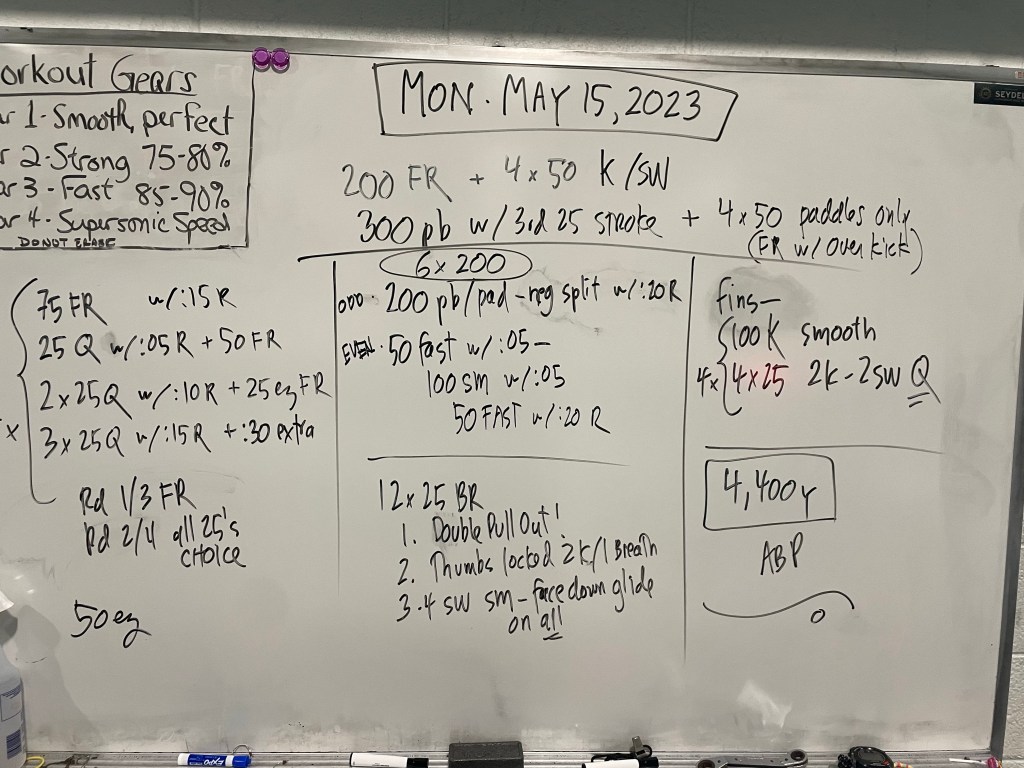 orkout Gears
ar 1-Smooth, perfect
r 2-Strong 75-80%
ar 3-Fast 85-90%
ar 4-Supersonic Speed
DO NOT ERASE
SEYDE
MON. MAY 15, 2023
200 FR + 4x50 K/SW
300 pb w/3rd 25 stroke + 4x50 paddles only
(FR w/ Over kick)
75 FR w/:15 R
25 Q w/:05 R + 50 FR
2x25Q w/:10R + 25 ez FR
x
3x25Q w/:15R +:30 extra
Rd 1/3 FR
Rd 2/4 all 25's
CHOICE
50 ez
6x200
ODD. 200 pb/pad-neg split w/:20R
EVEN. 50 fast w/:05-
100 sm w/:05
50 FAST w/:20 R
12x25 BR
1. Double Pull Out!
2. Thumbs locked 2K/1 Breath
3-4 SW sm-face down glide
on all
fins-
100K smooth
4x 4x25 2K-2SW Q
4,400y
ABP